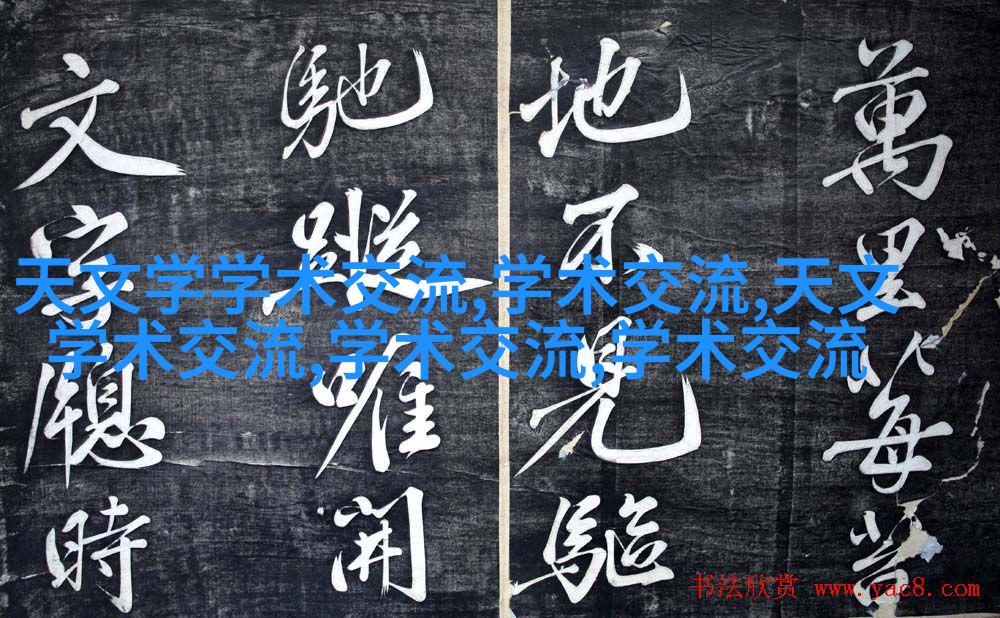 萬里每
地不見驅
馳蹤唯開
文字時
天文学学术交流,学术交流,天文
学术交流,学术交流,学术交流
书法欣赏 www.yac8.com